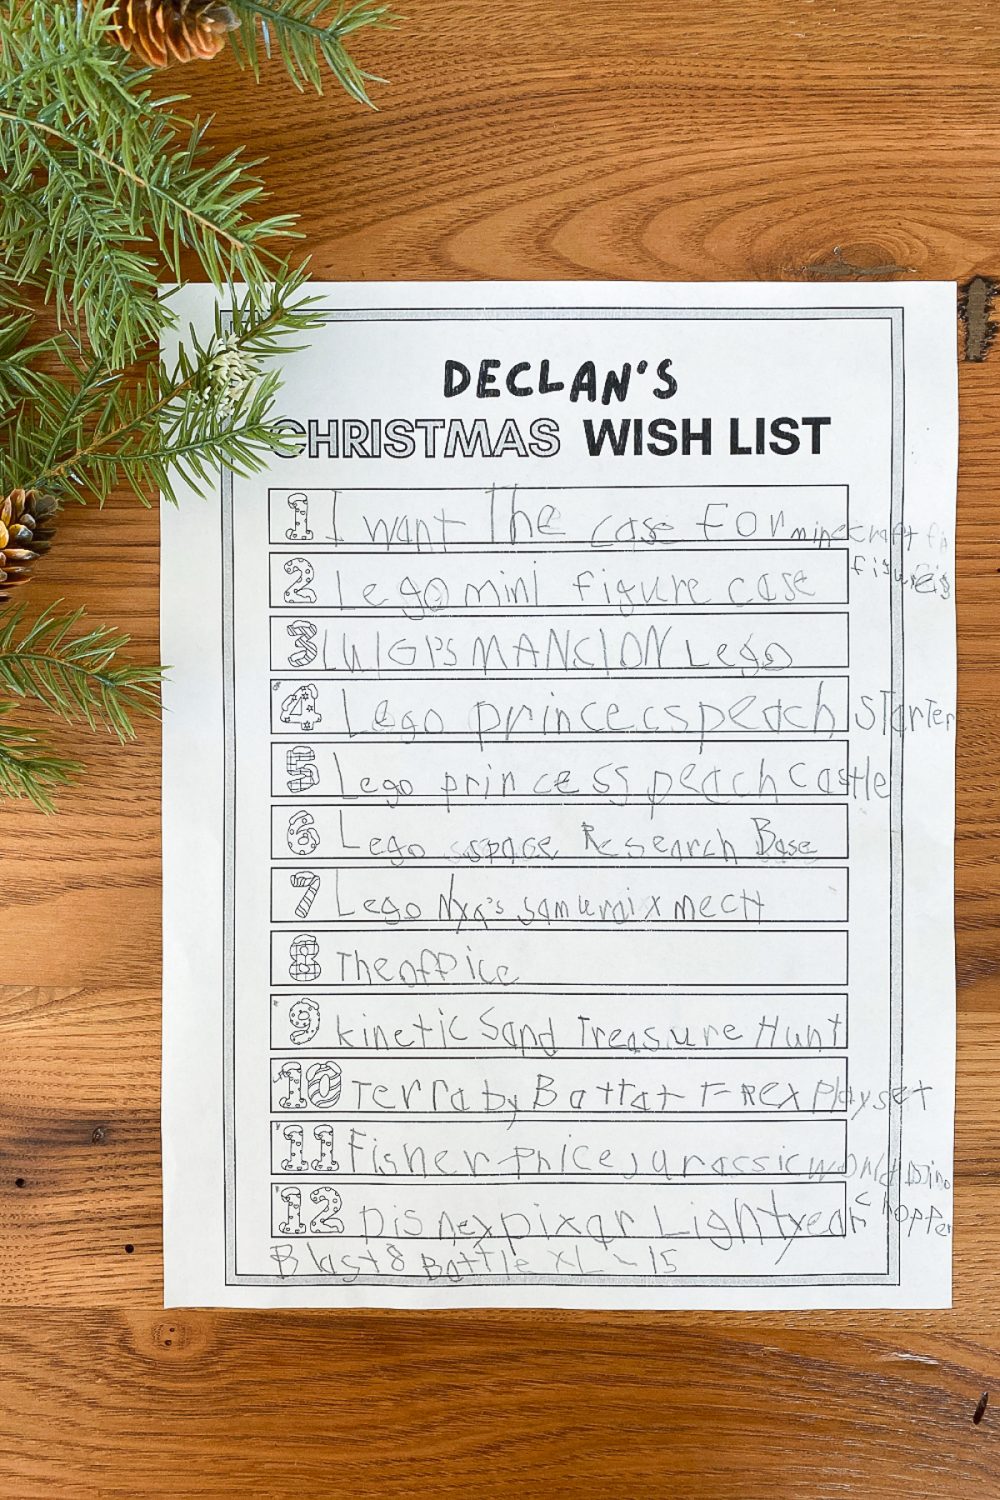 DECLAN'S
CHRISTMAS WISH LIST
1 I want The case For minecraft
figureis
2 Lego mini figure case
3 LUIGI'S MANCION Lego
4 Lego princecspeach STarTer
5 Lego princess peach castle
6 Lego space Research Base
7 Lego Nya's samurai x mecH
8 Theoffice
9 kinetic Sand Treasure Hunt
10 Terra by Battat T-REX Playset
11 Fisher-Price jurassic world Dino
chopper
12 Disney pixar Lightyear
Blast & Battle XL-15